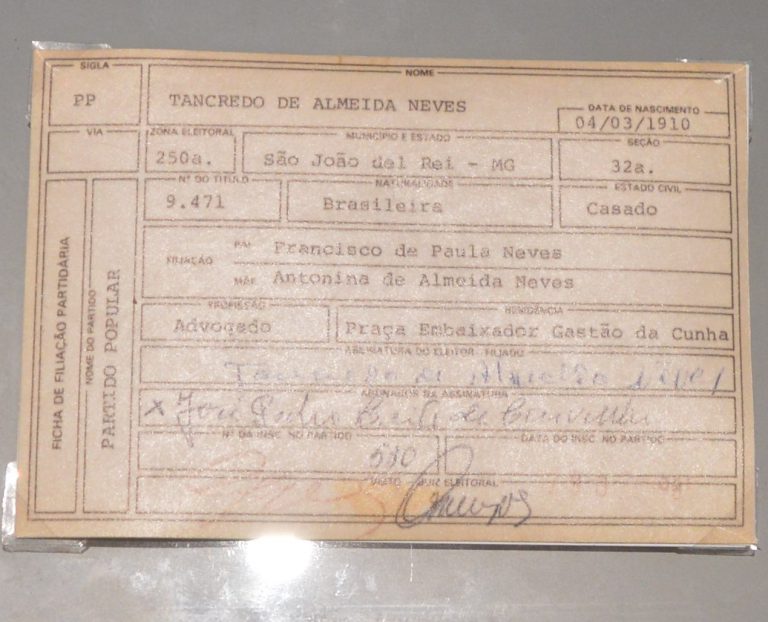 SIGLA
NOME
PP
TANCREDO DE ALMEIDA NEVES
DATA DE NASCIMENTO
04/03/1910
VIA
ZONA ELEITORAL
MUNICÍPIO E ESTADO
SEÇÃO
250a.
São João del Rei - MG
32a.
Nº DO TÍTULO
NATURALIDADE
ESTADO CIVIL
9.471
Brasileira
Casado
FICHA DE FILIAÇÃO PARTIDÁRIA
NOME DO PARTIDO
PARTIDO POPULAR
FILIAÇÃO
PAI Francisco de Paula Neves
MÃE Antonina de Almeida Neves
PROFISSÃO
RESIDÊNCIA
Advogado
Praça Embaixador Gastão da Cunha
ASSINATURA DO ELEITOR FILIADO
Tancredo de Almeida Neves
ABONADOR DA ASSINATURA
x José Pedro
Nº DA INSC. NO PARTIDO
DATA DO INSC. NO PARTIDO
510
VISTO JUIZ ELEITORAL